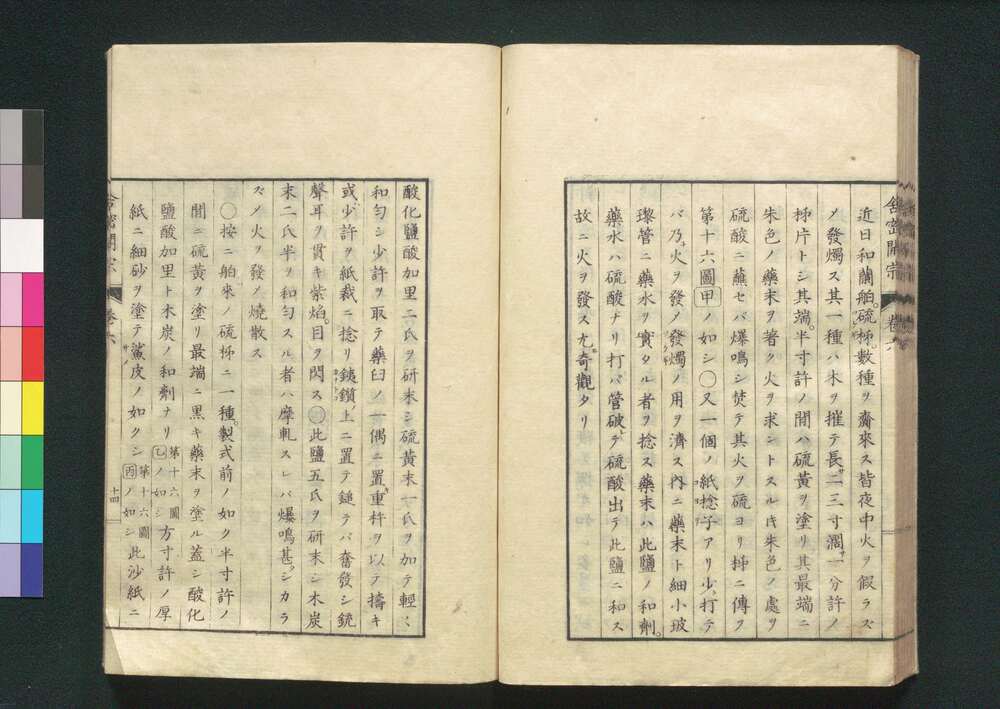 舎密開宗 卷六
近日和蘭舶。硫𣏓。數種ヲ齎來ス皆夜中火ヲ假ラズ
ノ發燭ス其一種ハ木ヲ摧テ長サ二三寸濶サ一分許ノ
𣏓片トシ其端。半寸許ノ間ハ硫黄ヲ塗リ其最端ニ
朱色ノ藥末ヲ著ク火ヲ求ントスル𪜈朱色ノ處ヲ
硫酸ニ蘸セバ爆鳴シ焚テ其火ヲ硫ヨリ𣏓ニ傳フ
第十六圖甲ノ如シ〇又一個ノ紙捻子アリ少ク打テ
バ乃チ火ヲ發ノ發燭ノ用ヲ濟ス內ニ藥末ト細小玻
瓈管ニ藥水ヲ實タル者ヲ捻ス藥末ハ此鹽ノ和劑。
藥水ハ硫酸ナリ打バ管破テ硫酸出テ此鹽ニ和ス
故ニ火ヲ發ス尤奇觀タリ
酸化鹽酸加里二氏ヲ研末シ硫黄末一氏ヲ加テ輕く
和匀シ少許ヲ取テ藥臼ノ一偶ニ置重キ杵ヲ以テ擣キ
或少許ヲ紙裁ニ捻リ銕鑽上ニ置テ鎚テバ奮發シ銃
聲耳ヲ貫キ紫焰。目ヲ閃ス〇此鹽五氏ヲ研末シ木炭
末二氏半ヲ和匀スル者ハ摩軋スレバ爆鳴甚。シカラ
ズノ火ヲ發ノ燒散ス
〇按ニ舶來ノ硫𣏓ニ一種。製式前ノ如ク半寸許ノ
間ニ硫黄ヲ塗リ最端ニ黒キ藥末ヲ塗ル蓋シ酸化
鹽酸加里ト木炭ノ和劑ナリ第十六圖乙ノ如シ方寸許ノ厚
紙ニ細砂ヲ塗テ鯊皮ノ如クシ第十六圖丙ノ如シ此沙紙ニ
舎密開宗 卷六 十四